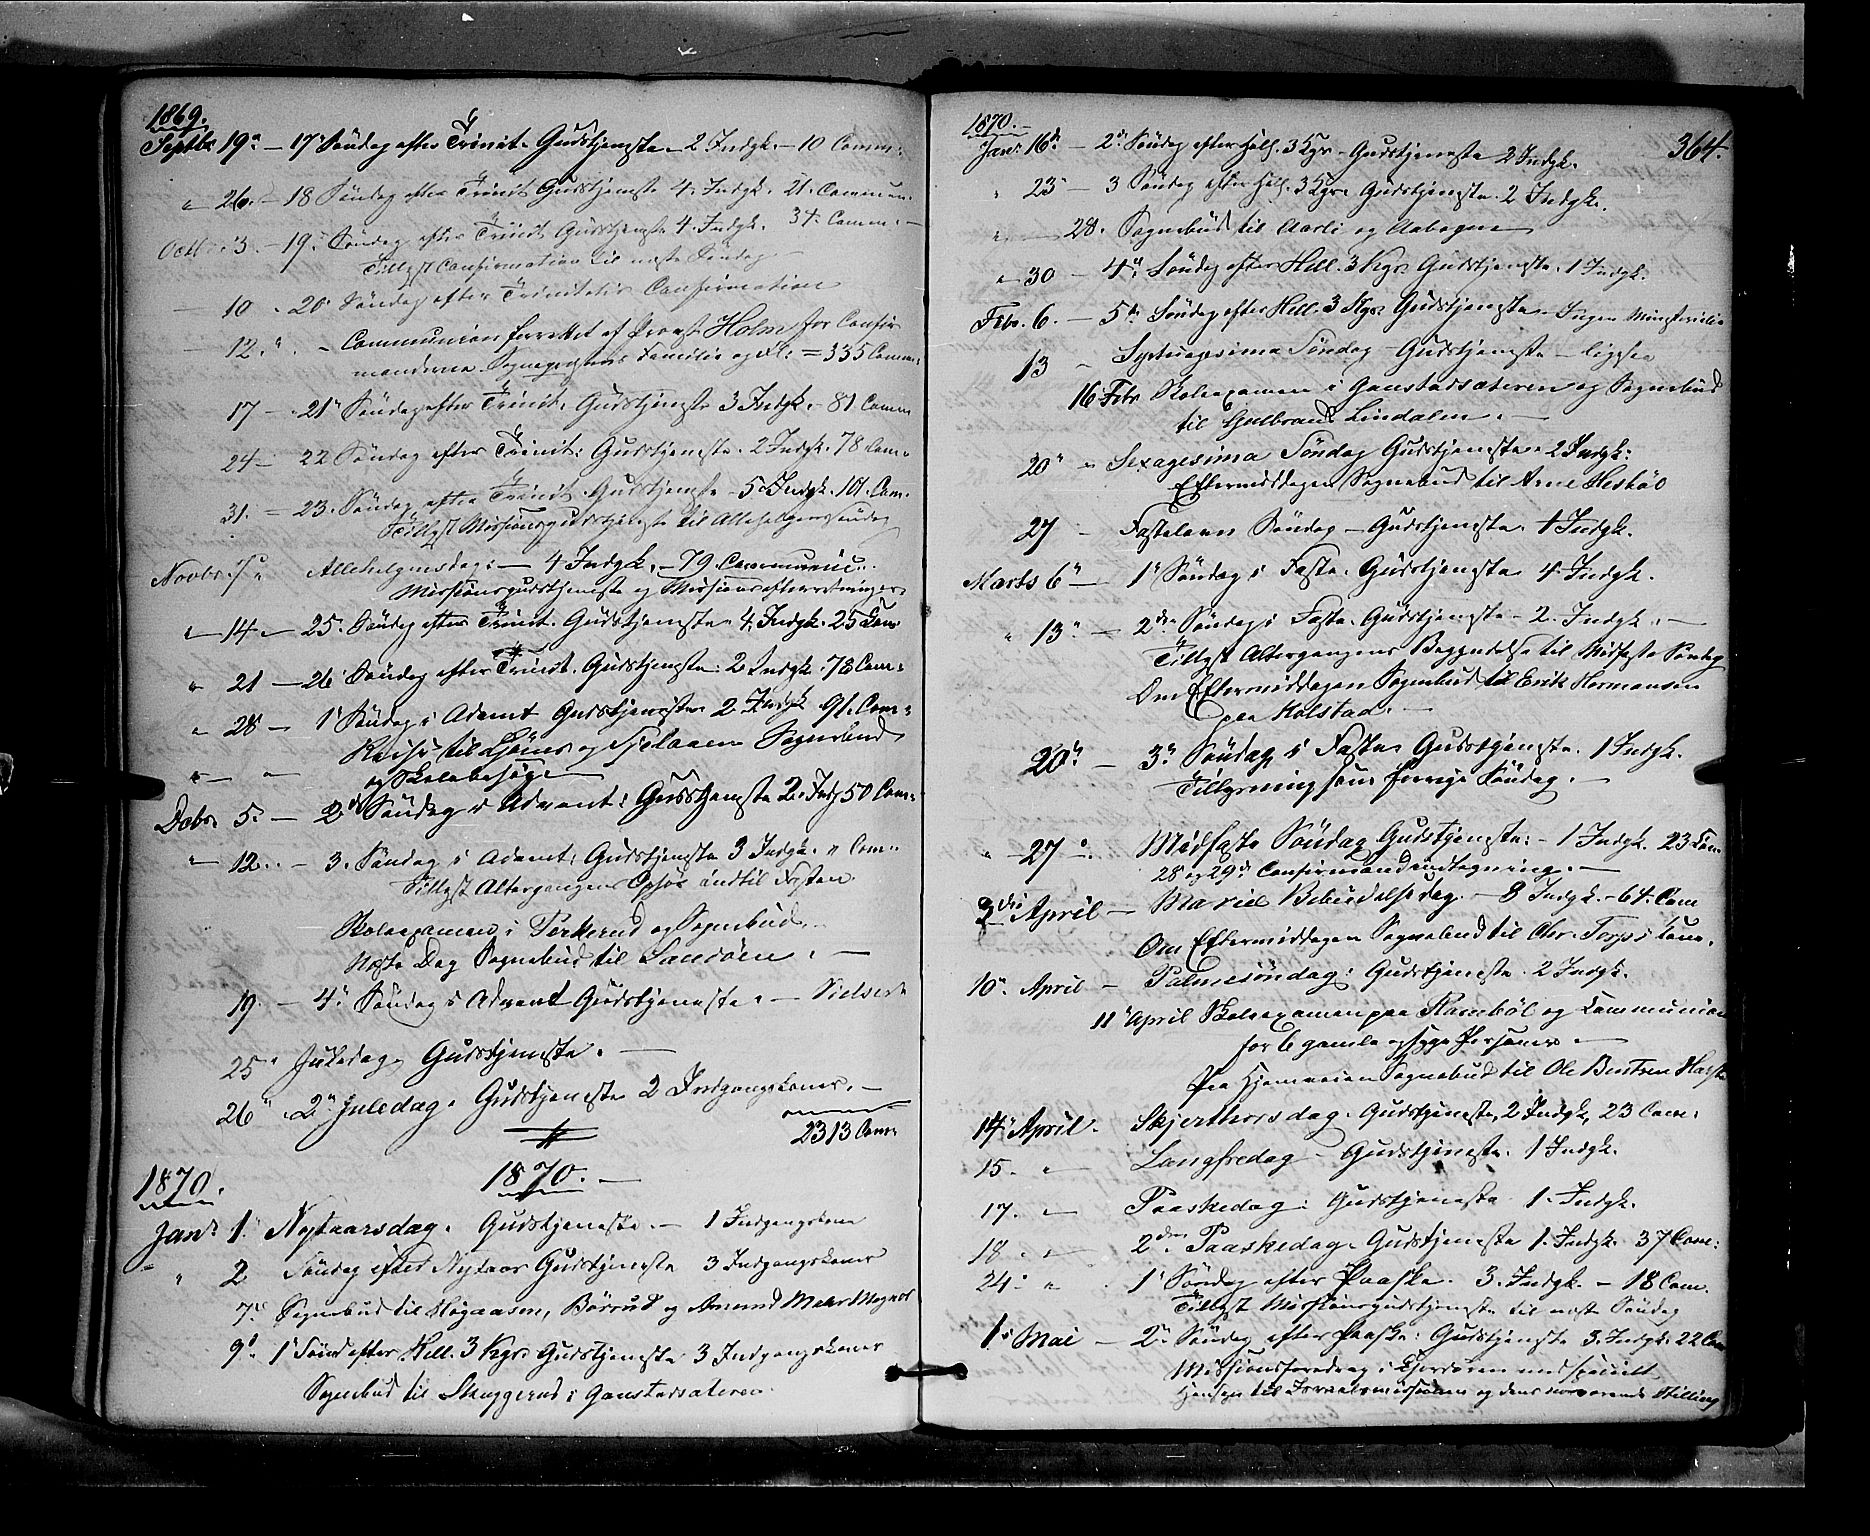 1869.
Septbr 19de – 17 Søndag efter Trinit. Gudstjeneste – 2 Indgk. – 10 Comm:
" 26. – 18 Søndag efter Trinit Gudstjeneste 4. Indgk. 21. Commun.
Octbr 3. – 19. Søndag efter Trinit Gudstjeneste 4. Indgk. 34. Comm. –
Tillyst Confirmation til næste Søndag
10 – 20 Søndag efter Trinitatis Confirmation
12. " – Communion forrettet af Provst Holm for Confir
manderne Sognepræstens Familie og Fl: = 335 Comm:
17 – 21 Søndag efter Trinit. Gudstjeneste 3 Indgk. – 81 Comm
24 – 22 Søndag efter Trinit: Gudstjeneste. 2 Indgk. 78 Com.
31. – 23. Søndag efter Trinit. Gudstjeneste – 5 Indgk. 101. Com.
Tillyst Missionsgudstjeneste til Allehelgenssøndag
Novbr. 7 " Allehelgensdag: – 4 Indgk. – 79. Communic..
Missionsgudstjeneste og Missionsefterretninger
" 14 – 25. Søndag efter Trinit. Gudstjeneste 4. Indgk. 25 Com
" 21 – 26 Søndag efter Trinit. Gudstjeneste: 2 Indgk. 78 Com.
" 28 – 1 Søndag i Advent Gudstjeneste 2 Indgk 91. Com.
" — " Reise til og Sognebud
og Skolebesøg
Decbr. 5. – 2d Søndag i Advent: Gudstjeneste 2. Indg 50 Com.
" 12. – 3. Søndag i Advent: Gudstjeneste 3 Indgk. " Com..
Tillyst Altergangens Ophør indtil Fasten.
Skoleexamen i Torkerud og Sognebud
Næste Dag Sognebud til Sandøen. –
19. – 4. Søndag i Advent Gudstjeneste. –
25 " Juledag. Gudstjeneste. –
26 " 2den Juledag. Gudstjeneste 2 Indgangskoner. –
2313 Com:
1870. 1870. –
Janr 1. Nytaarsdag. Gudstjeneste. – 1 Indgangskone
" " 2 Søndag efter Nytaar Gudstjeneste 3 Indgangskoner
7de Sognebud til Høgaasen, Børrud og Amund
9de 1 Sønd efter Hell. 3 Kgr. Gudstjeneste 3 Indgangskoner
Sognebud til Skuggerud i Gaustadsæteren.
1870. – 364.
Janr 16de – 2. Søndag efter Hell. 3 Kgr. – Gudstjeneste 2 Indgk.
" 23 – 3 Søndag efter Hell. 3 Kgr. Gudstjeneste. 2 Indgk.
" 28. Sognebud til Aarli og Aabogen
" 30 – 4. Søndag efter Hell. 3 Kgr. Gudstjeneste. 1 Indgk.
Febr. 6. – 5te Søndag efter Hell. 3 Kgr. Gudstjeneste – Ingen Ministerialia
13 – Septuagesima Søndag – Gudstjeneste – ligesaa
16 Febr Skoleexamen i Gaustadsæteren og Sognebud
til Gulbrand Lindalen. –
20 " Sexagesima Søndag Gudstjeneste 2 Indgk:
Eftermiddagen Sognebud til Arne
27 – Fastelavn Søndag – Gudstjeneste. 1 Indgk.
Marts 6 – 1 Søndag i Faste. Gudstjeneste 4. Indgk.
" 13 – 2den Søndag i Faste. Gudstjeneste – 2. Indgk. –
Tillyst Altergangens Begyndelse til Midfaste Søndag
Om Eftermiddagen Sognebud til Erik Hermansen
paa Kolstad. –
20 – 3. Søndag i Faste Gudstjeneste. 1 Indgk.
Tillysning som forrige Søndag. –
" 27 – Midfaste Søndag Gudstjeneste: – 1 Indgk. 23 Com.
28 og 29de Confirmandindtagning. –
3die April – Mariæ Bebudelsesdag. – 8 Indgk. – 64. Com
Om Eftermiddagen Sognebud til
10. April – Palmesøndag: Gudstjeneste. 2 Indgk.
11 April Skoleexamen paa og Communion
for 6 gamle og syge Personer –
Paa Hjemveien Sognebud til Ole
14 April. Skjærthorsdag. Gudstjeneste, 2 Indgk, 23 Com:
15. " Langfredag – Gudstjeneste. 1 Indgk.
17. " Paaskedag: Gudstjeneste 1. Indgk.
18 " 2den Paaskedag. Gudstjeneste 1. Indgk. 37 Com:
24 " 1 Søndag efter Paaske. 3. Indgk. – 18 Com.
Tillyst Missionsgudstjeneste til næste Søndag
1. Mai – 2. Søndag efter Paaske: Gudstjeneste 3. Indgk: 22 Com
Missionsforedrag i med specielt
Hensyn til Israelsmissionen og dens nærværende Stilling